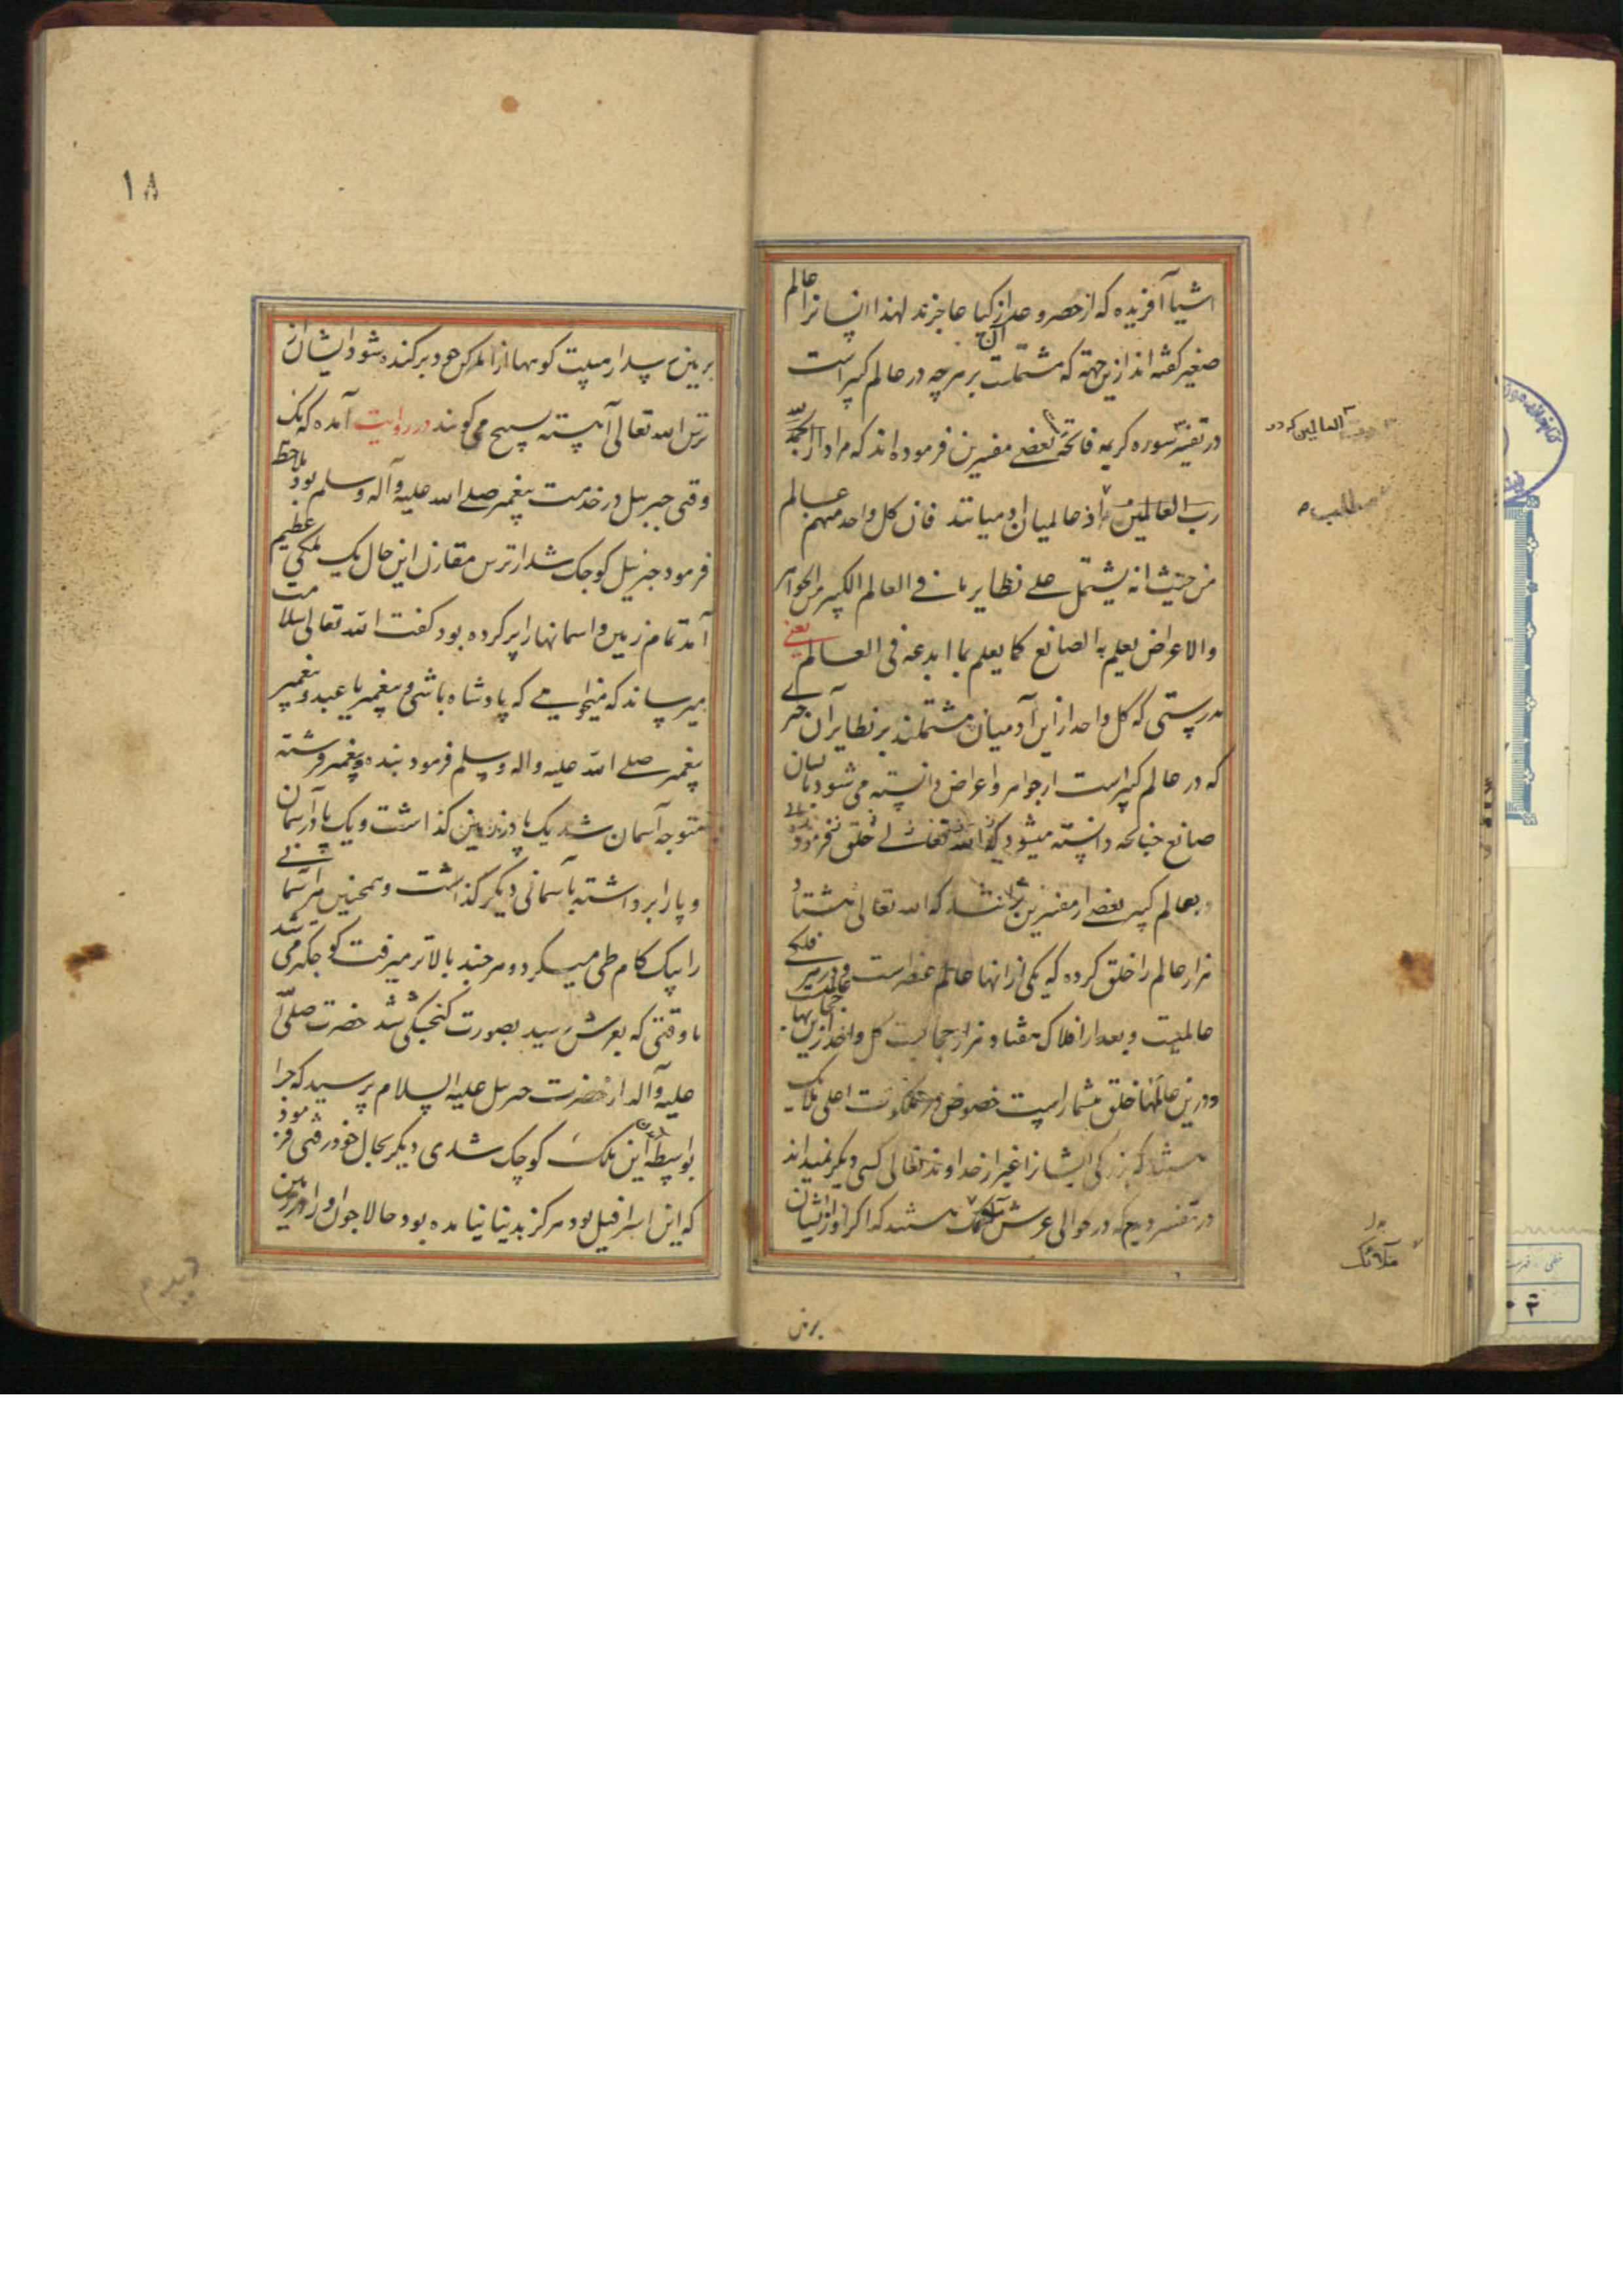 اشیا آفریده که از حصر و عد آن ازکیا عاجزند لهذا انسانرا عالم
صغیر کفته اند ازین جهة که مشتملست بر هرچه در عالم کبیر است
در تفسیر سوره کریمه فاتحه بعضی مفسرین فرموده اند که مراد از الحمد لله
رب العالمین از عالمیان آدمیانند فان کل واحد منهم عالم
من حیث انه یشتمل علی نظایر ما فی العالم الکبیر من الجواهر
والاعراض یعلم به الصانع کما یعلم بما ابدعه فی العالم یعنی
بدرستی که کل واحد از این آدمیان مشتملند بر نظایر آن چیزی
که در عالم کبیر است از جواهر و اعراض دانسته می شود بانسان
صانع چنانچه دانسته میشود که الله تعالی خلق فرموده
و بعالم کبیر بعضی از مفسرین برانند که الله تعالی هشتاد
هزار عالم را خلق کرده که یکی از انها عالم عنصر است و در هر فلکی
عالمیت و بعد از افلاک هفتاد هزار حجابست کل واحد ازین حجابها عالمیت
و درین عالمها خلق بیشمار است خصوص در ملکوت اعلی ملائک
هستند که بزرکی ایشانرا غیر از خداوند تعالی کسی دیکر نمیداند
در تفسیر دیدم که در حوالی عرش ملک هستند که اکر آواز ایشان
العالمین که در
مطلب
بدل
ملائک
بر زمین
۱۸
بر زمین رسد از هیبت کوهها از هم بر کنده شود ایشان از
ترس الله تعالی آهسته تسبیح می کویند در روایت آمده که یک
وقتی جبرئیل در خدمت پیغمبر صلی الله علیه و آله و سلم بود ملاحظه
فرمود جبرئیل کوچک شد از ترس مقارن این حال یک ملکی عظیم
آمد تمام زمین و اسمانها را پر کرده بود کفت الله تعالی سلامت
میرساند که میخواهی که پادشاه باشی و پیغمبر یا عبد و پیغمبر
پیغمبر صلی الله علیه واله وسلم فرمود بنده و پیغمبر فرشته
متوجه آسمان شد یک پا در زمین کذاشت و یک پا در آسمان
و پا را برداشته بآسمانی دیکر کذاشت و همچنین هر آسمانی
را بیک کام طی میکرد و هر چند بالاتر میرفت کوچکتر می شد
تا وقتی که بعرش رسید بصورت کنجشکی شد حضرت صلی الله
علیه وآله از حضرت جبرئیل علیه السلام پرسید که چرا
بواسطه آمدن این ملک کوچک شدی دیکر بحال خود رفتی فرمود
که این اسرافیل بود هرکز بدنیا نیامده بود حالا چون او را در زمین
دیدم